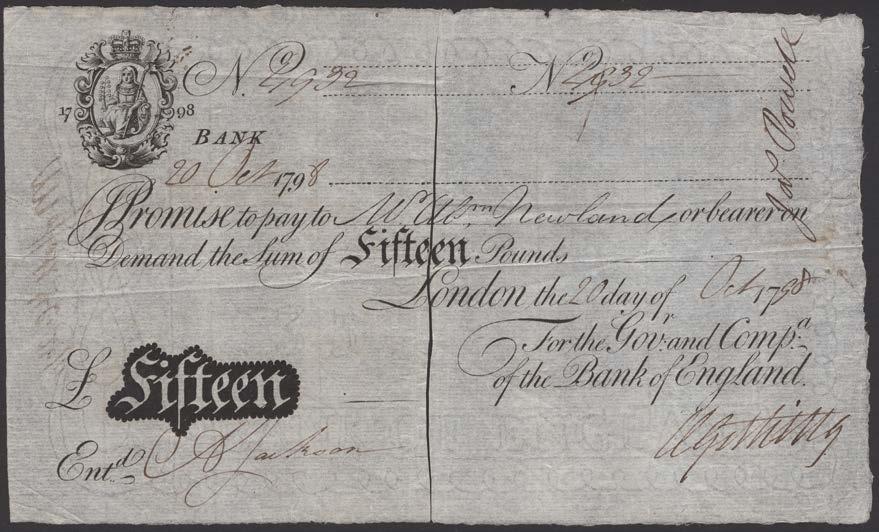 No. 2932 No. 2932
17 98
BANK
20 Oct 1798
I Promise to pay to Mr. Abm. Newland, or bearer on
Demand the Sum of Fifteen Pounds
London the 20 day of Oct 1798
For the Govr. and Compa.
of the Bank of England.
£ Fifteen
Entd. Jackson
Jas. Powell